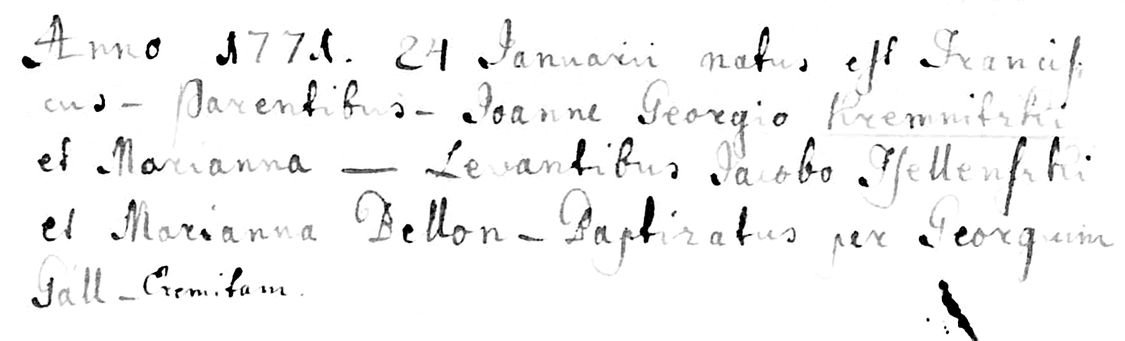 Anno 1771. 24 Januarii natus est Francis:
cus - Parentibus - Joanne Georgio Kremnitzki
et Marianna — Levantibus Jacobo
et Marianna Bellon - Baptizatus per Georgium
Gall - Eremitam.